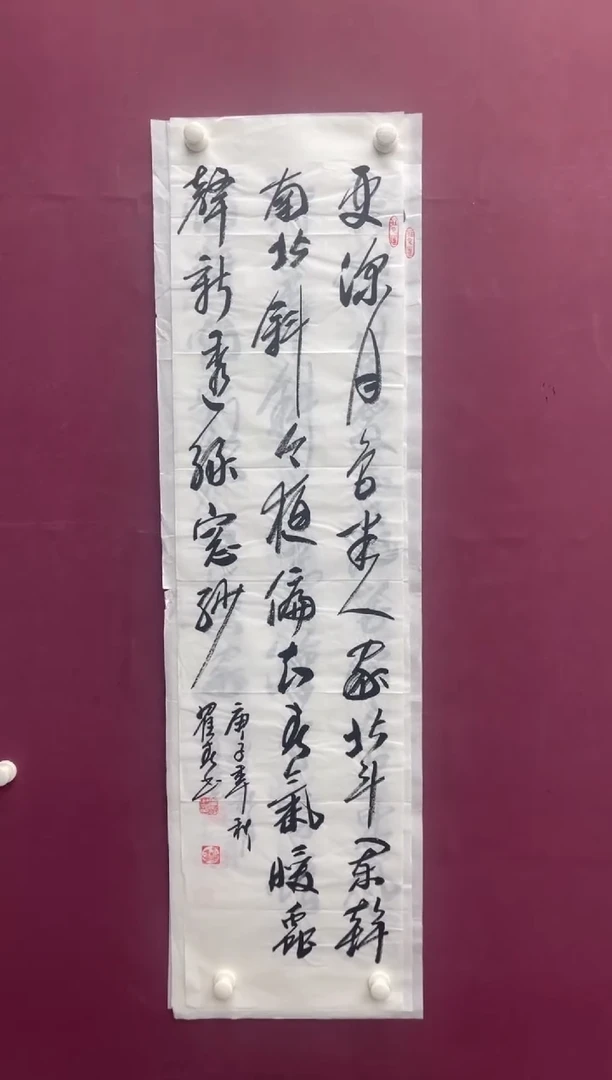 更深月色半人家北斗闌幹
南北斜今夜偏知春氣暖蟲
聲新透綠窗紗
庚子年秋
翟春书